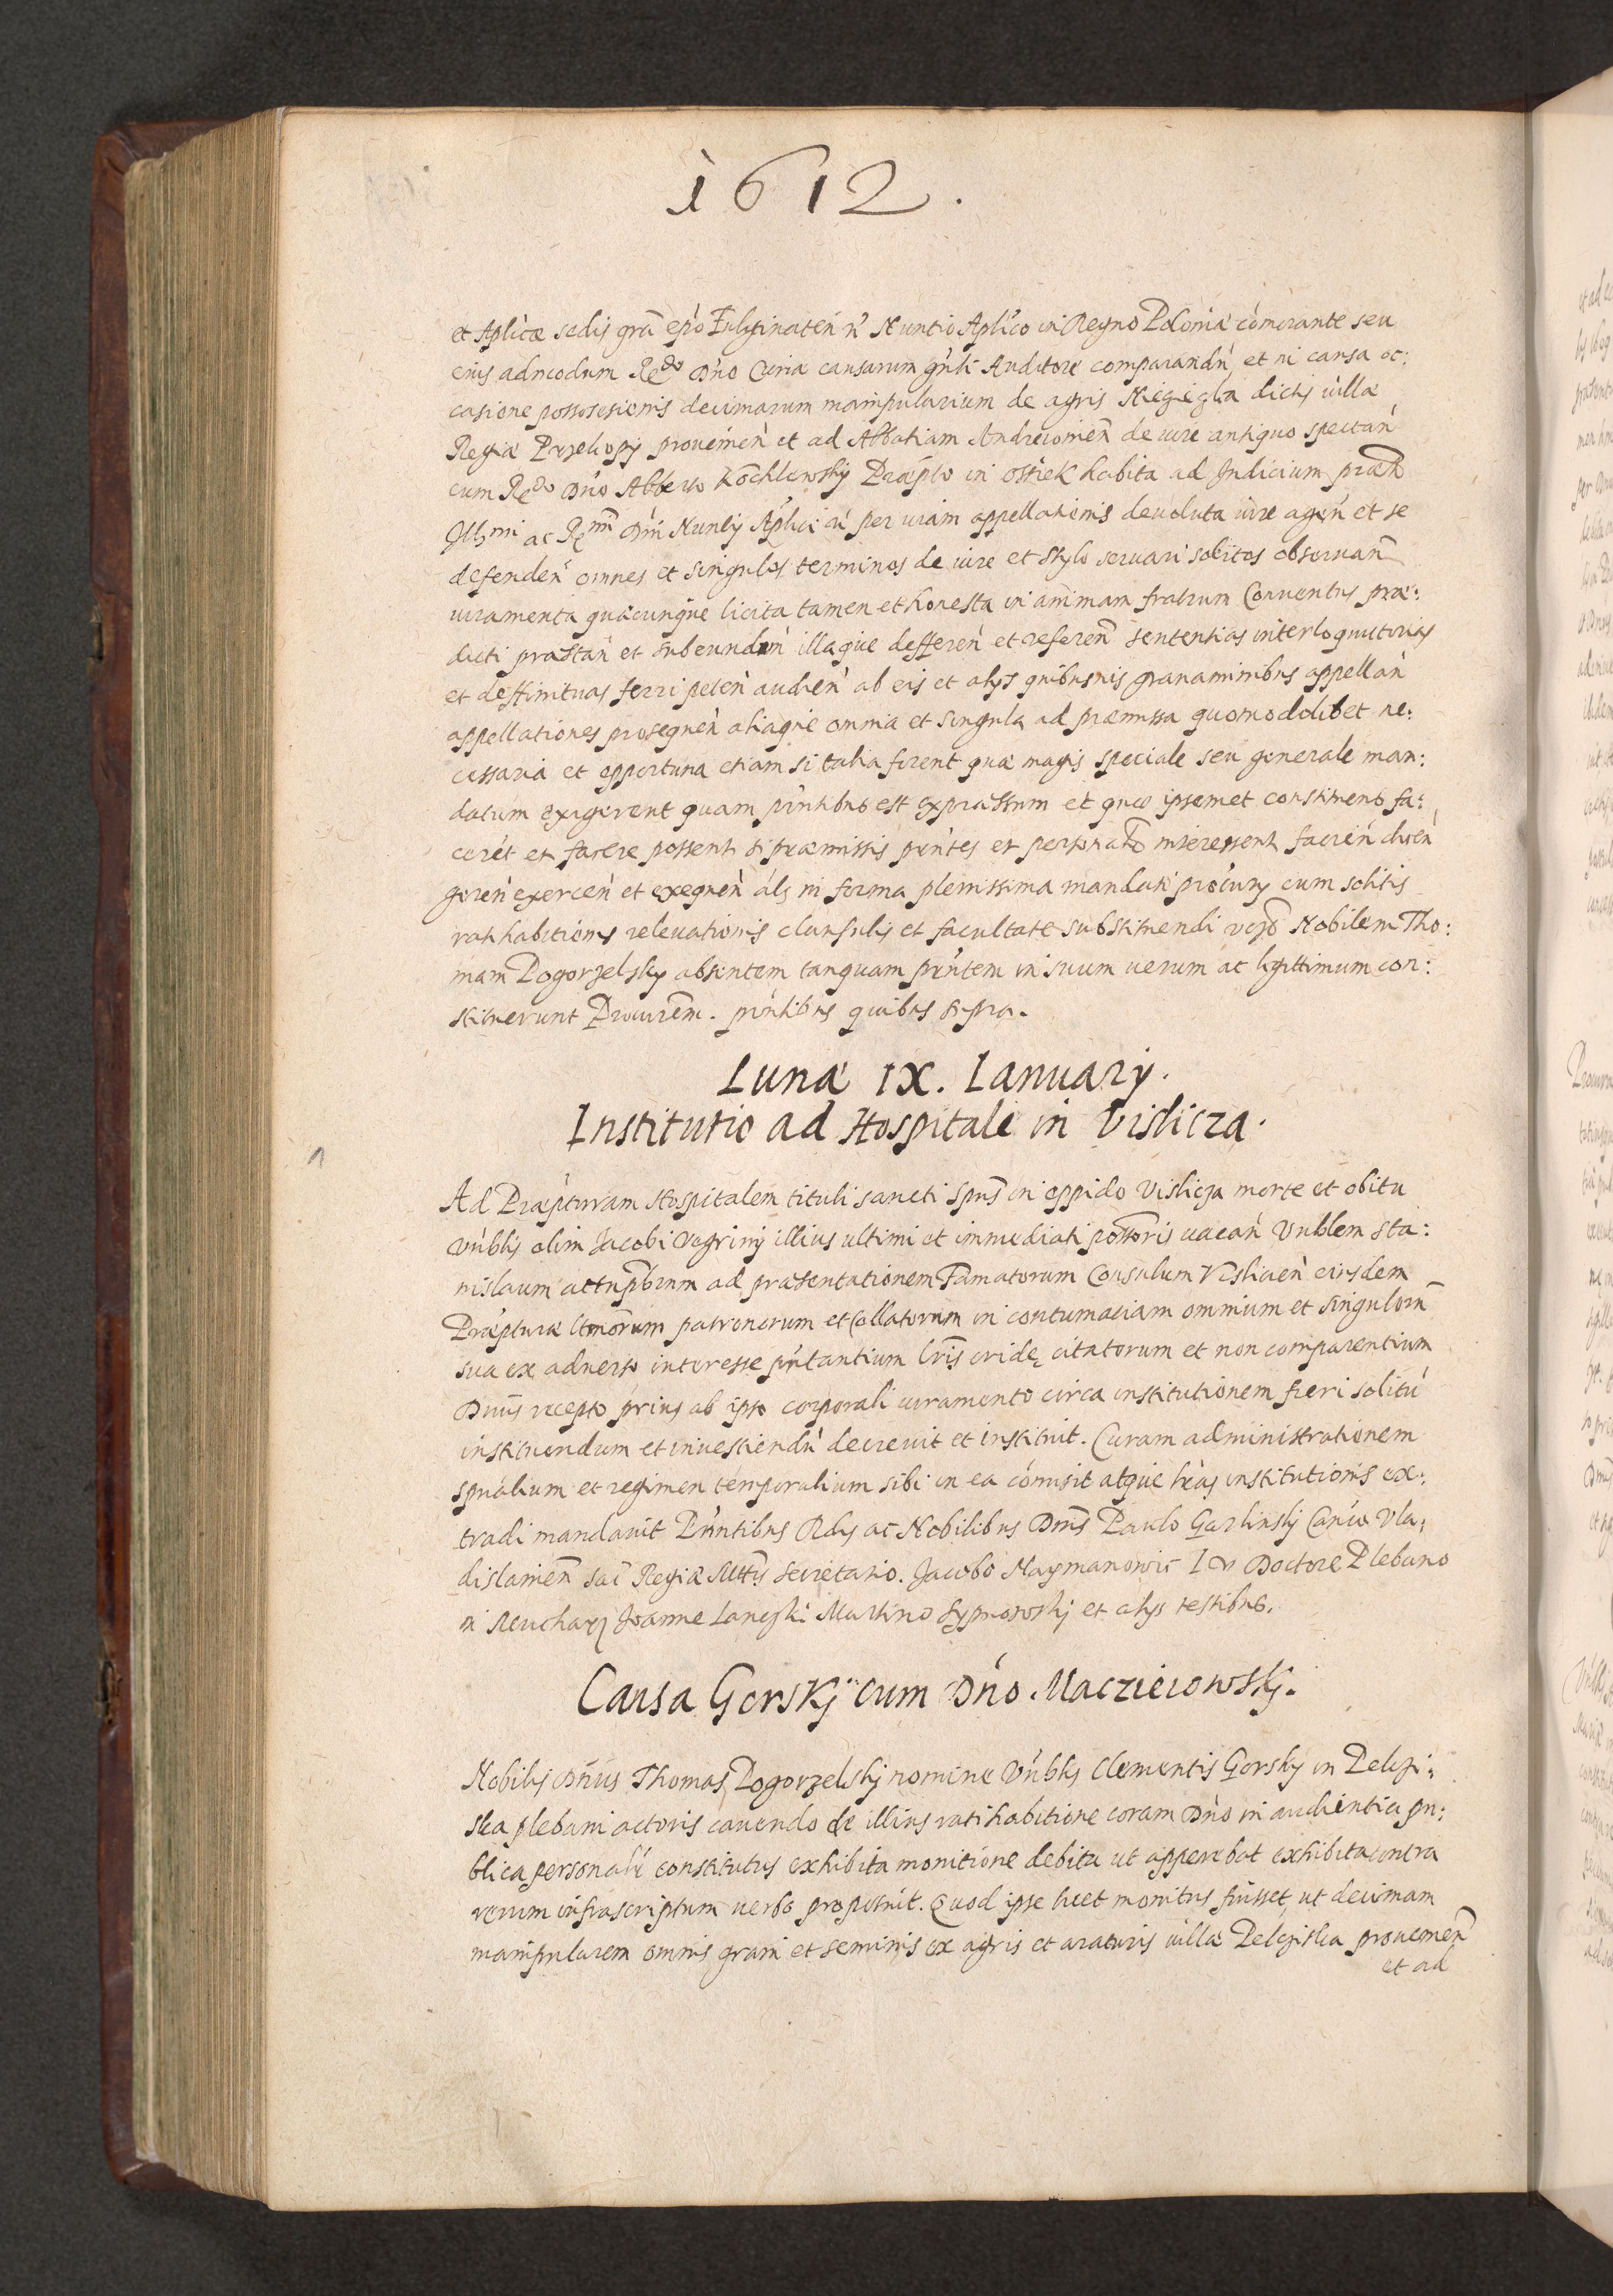 1612.
et Aplicæ sedis grã epo Fulginaten ñ Nuntio Aplico in Regno Poloniæ comorante seu
eius admodum Redo Dno Curiæ causarum gnli Auditore comparandũ et in causa oc:
casione possessionis decimarum manipularium de agris dictis villæ
Regiæ prouenien et ad Abbatiam Andreiouien de iure antiquo spectan
cum Rdo Dno Kochlewsky Præpto in Ossiek habita ad Iudicium præti
Illmi ac Rmi Dni Nuntij Aplici per uiam appellationis deuoluta iure agen et se
defenden omnes et singulos terminos de iure et stylo seruari solitos obseruan
iuramenta quæcunque licita tamen et honesta in animam fratrum Conuentus præ:
dicti præstan et subeundũ illaque defferen et referen sententias interloquutorias
et deffinituas ferri peten audien ab eis et alijs quibusuis grauaminibus appellan
appellationes prosequen aliaque omnia et singula ad præmissa quomodolibet ne:
cessaria et opportuna etiam si talia forent quæ magis speciale seu generale man:
datum exigerent quam pntibus est expressum et quæ ipsemet constituens fa:
ceret et facere possent si præmissis pntes et personalr interessent facien dicen
geren exercen et exequen als in forma plenissima mandati procury cum solitis
ratihabitionis releuationis clausulis et facultate substituendi vero Nobilem Tho:
mam Pogorzelsky absentem tanquam pntem in suum uerum ac legittimum con:
stituerunt Procurem. pntibus quibus supra.
Lunæ IX. Ianuary.
Institutio ad Hospitale in Vislicza.
Ad Præpturam Hospitalem tituli sancti Spus in oppido Vislicza morte et obitu
Vnblis olim Jacobi Vegriny illius ultimi et immediati possoris uacan Vnblem Sta:
nislaum ad præsentationem Famatorum Consulum Vislicien eiusdem
Præpturæ patronorum et Collatorum in contumaciam omnium et singulorũ
sua ex aduerso interesse putantium lris citatorum et non comparentium
Dnus recepto prius ab ipso corporali iuramento circa institutionem fieri solitũ
instituendum et inuestiendũ decreuit et instituit. Curam administrationem
spualium et regimen temporalium sibi in ea comisit atque lras institutionis ex:
tradi mandauit Pntibus Rdis ac Nobilibus Dnis Paulo Garlinsky Canco Vla:
dislauien Sac Regiæ Mttis Secretario. Jacobo Naymanowic I V Doctore Plebano
in Joanne Martino et alijs testibus.
Causa Gorskÿ cum Dno Macziejowskj.
Nobilis Dnus Thomas Pogorzelskj nomine Vnblis Clementis Gorsky in Pelczi:
ska plebani actoris cauendo de illius ratihabitione coram Dno in audientia pu:
blica personalr constitutus exhibita monitione debita ut apperebat exhibita contra
reum infrascriptum uerbo proposuit. Quod ipse licet monitus fuisset ut decimam
manipularem omnis grani et seminis ex agris et araturis uillæ Pelcziska prouenien
et ad